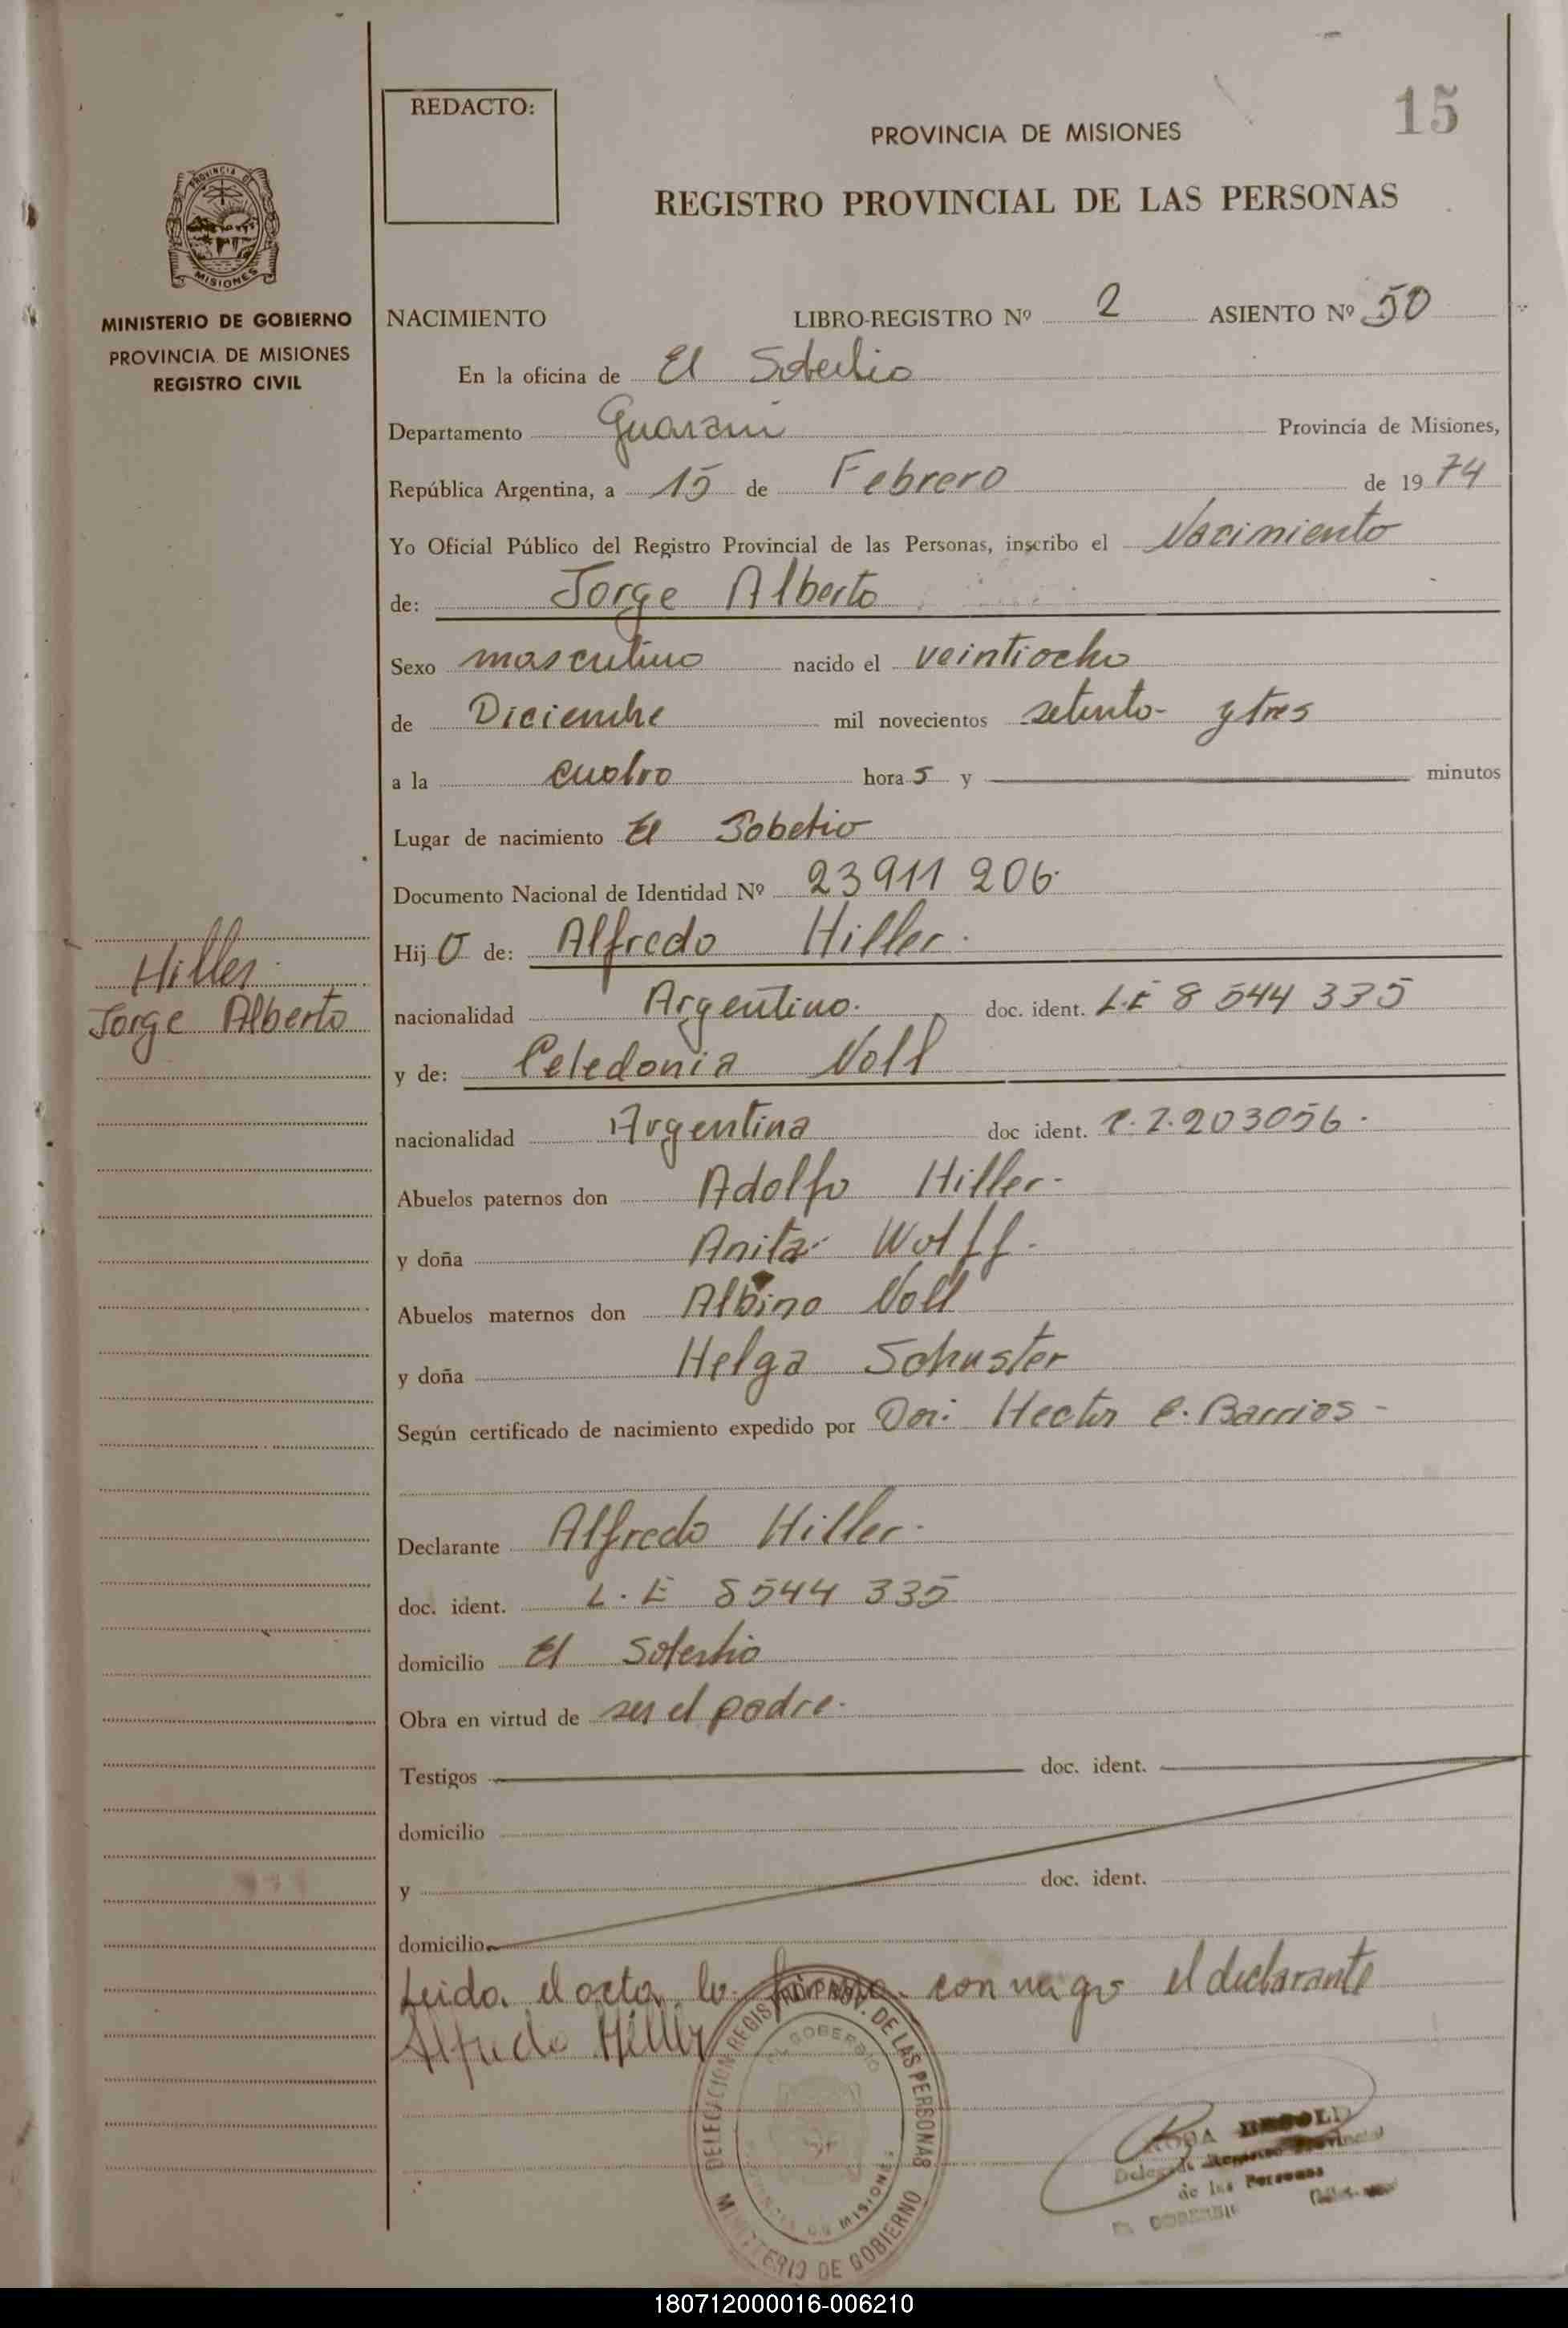 REDACTO:
15
PROVINCIA DE MISIONES
REGISTRO PROVINCIAL DE LAS PERSONAS
PROVINCIA DE
MISIONES
MINISTERIO DE GOBIERNO
PROVINCIA DE MISIONES
REGISTRO CIVIL
NACIMIENTO LIBRO-REGISTRO Nº 2 ASIENTO Nº 50
En la oficina de El Soberbio
Departamento Guarani Provincia de Misiones,
República Argentina, a 15 de Febrero de 1974
Yo Oficial Público del Registro Provincial de las Personas, inscribo el Nacimiento
de: Jorge Alberto
Sexo masculino nacido el veintiocho
de Diciembre mil novecientos setenta y tres
a la cuatro horas y minutos
Lugar de nacimiento El Soberbio
Documento Nacional de Identidad Nº 23 911 206
Hijo de: Alfredo Hiller
Hiller
Jorge Alberto
nacionalidad Argentino. doc. ident. L.E 8 544 335
y de: Celedonia Noll
nacionalidad Argentina doc ident. 203056
Abuelos paternos don Adolfo Hiller
y doña Anita Wolff
Abuelos maternos don Albino Noll
y doña Helga Schuster
Según certificado de nacimiento expedido por Hector C. Barrios
Declarante Alfredo Hiller
doc. ident. L.E 8544 335
domicilio El Soberbio
Obra en virtud de ser el padre
Testigos doc. ident.
domicilio
y doc. ident.
domicilio
Leida el acta la firma conmigo el declarante
Alfredo Hiller
DELEGACION REGISTRO PROV. DE LAS PERSONAS
EL SOBERBIO
MISIONES
MINISTERIO DE GOBIERNO
ROSA
Registro Provincial
de las Personas
180712000016-006210